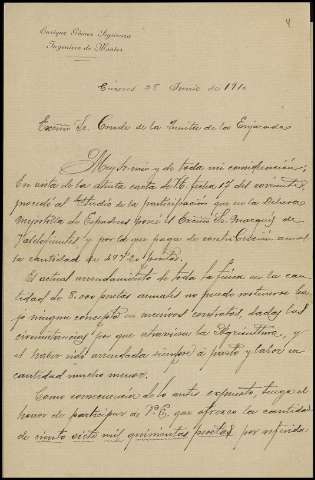 4
Enrique Gómez
Ingeniero de Montes
Cáceres 28 Junio de 1910
Excmo Sr. Conde de la Quinta de la Enjarada
Muy Sr. mio y de toda mi consideración:
En vista de la atenta carta de V. fecha 17 del corriente,
procedí al estudio de la participación que en la Dehesa
de posee el Excmo Sr. Marqués de
Valdefuentes y por la que paga de contribución anual
la cantidad de pesetas.
El actual arrendamiento de toda la finca en la can-
tidad de 8.000 pesetas anuales no puede sostenerse ba-
jo ningun concepto en nuevos contratos, dadas las
circunstancias por que atraviesa la Agricultura, y
el haber sido arrendada siempre á pasto y labor en
cantidad mucho menor.
Como consecuencia de lo antes expuesto, tengo el
honor de participar á V.E. que ofrezco la cantidad
de ciento siete mil quinientas pesetas por referida